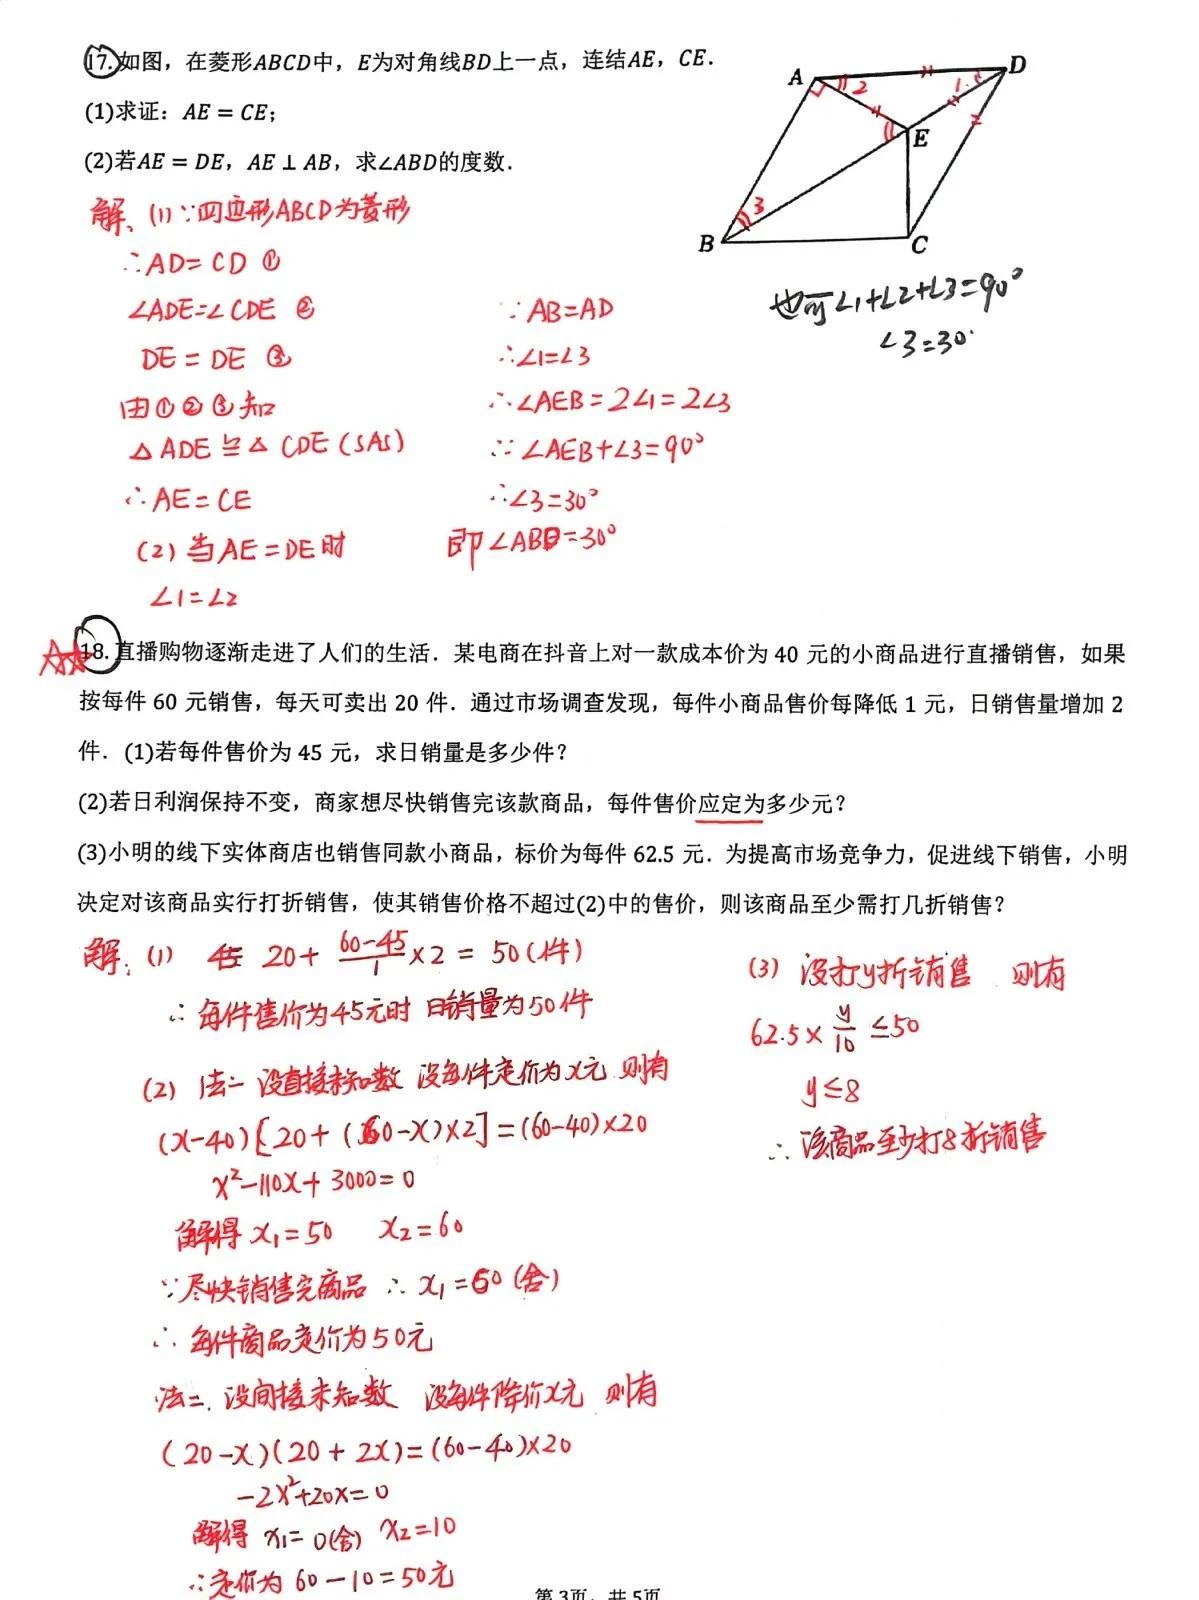 17.如图，在菱形ABCD中，E为对角线BD上一点，连结AE，CE．
(1)求证：AE = CE；
(2)若AE = DE，AE ⊥ AB，求∠ABD的度数．
A
D
2
1
E
3
B
C
也可∠1+∠2+∠3=90°
∠3=30°
解：(1)∵四边形ABCD为菱形
∴AD=CD ①
∠ADE=∠CDE ②
DE=DE ③
由①②③知
△ADE≌△CDE(SAS)
∴AE=CE
(2)当AE=DE时
∠1=∠2
∵AB=AD
∴∠1=∠3
∴∠AEB=2∠1=2∠3
∵∠AEB+∠3=90°
∴∠3=30°
即∠ABD=30°
18.直播购物逐渐走进了人们的生活．某电商在抖音上对一款成本价为 40 元的小商品进行直播销售，如果
按每件 60 元销售，每天可卖出 20 件．通过市场调查发现，每件小商品售价每降低 1 元，日销售量增加 2
件．(1)若每件售价为 45 元，求日销量是多少件？
(2)若日利润保持不变，商家想尽快销售完该款商品，每件售价应定为多少元？
(3)小明的线下实体商店也销售同款小商品，标价为每件 62.5 元．为提高市场竞争力，促进线下销售，小明
决定对该商品实行打折销售，使其销售价格不超过(2)中的售价，则该商品至少需打几折销售？
解：(1) 20+\frac{60-45}{1}×2=50(件)
∴每件售价为45元时 日销量为50件
(2) 法一 设直接未知数 设每件定价为x元 则有
(x-40)[20+(60-x)×2]=(60-40)×20
x²-110x+3000=0
解得 x₁=50 x₂=60
∵尽快销售完商品 ∴x₁=60(舍)
∴每件商品定价为50元
法二．设间接未知数 设每件降价x元 则有
(20-x)(20+2x)=(60-40)×20
-2x²+20x=0
解得 x₁=0(舍) x₂=10
∴定价为 60-10=50元
(3) 设打y折销售 则有
62.5×\frac{y}{10}≤50
y≤8
∴该商品至少打8折销售
第 3页，共 5页